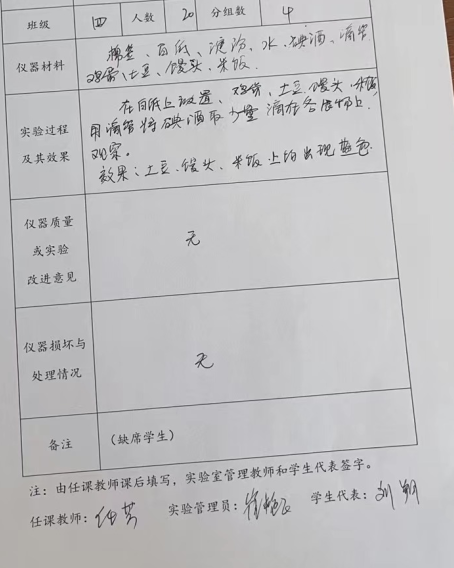 班级 四 人数 20 分组数 4
仪器材料
棉签、白纸、淀粉、水、碘酒、滴管
鸡蛋、土豆、馒头、米饭.
实验过程
及其效果
在白纸上放置、鸡蛋、土豆、馒头、米饭
用滴管将碘酒取少量滴在各食物上.
观察。
效果:土豆、馒头、米饭上均出现蓝色.
仪器质量
或实验
改进意见
无
仪器损坏与
处理情况
无
备注 (缺席学生)
注:由任课教师课后填写,实验室管理教师和学生代表签字。
任课教师: 实验管理员: 学生代表:刘翔